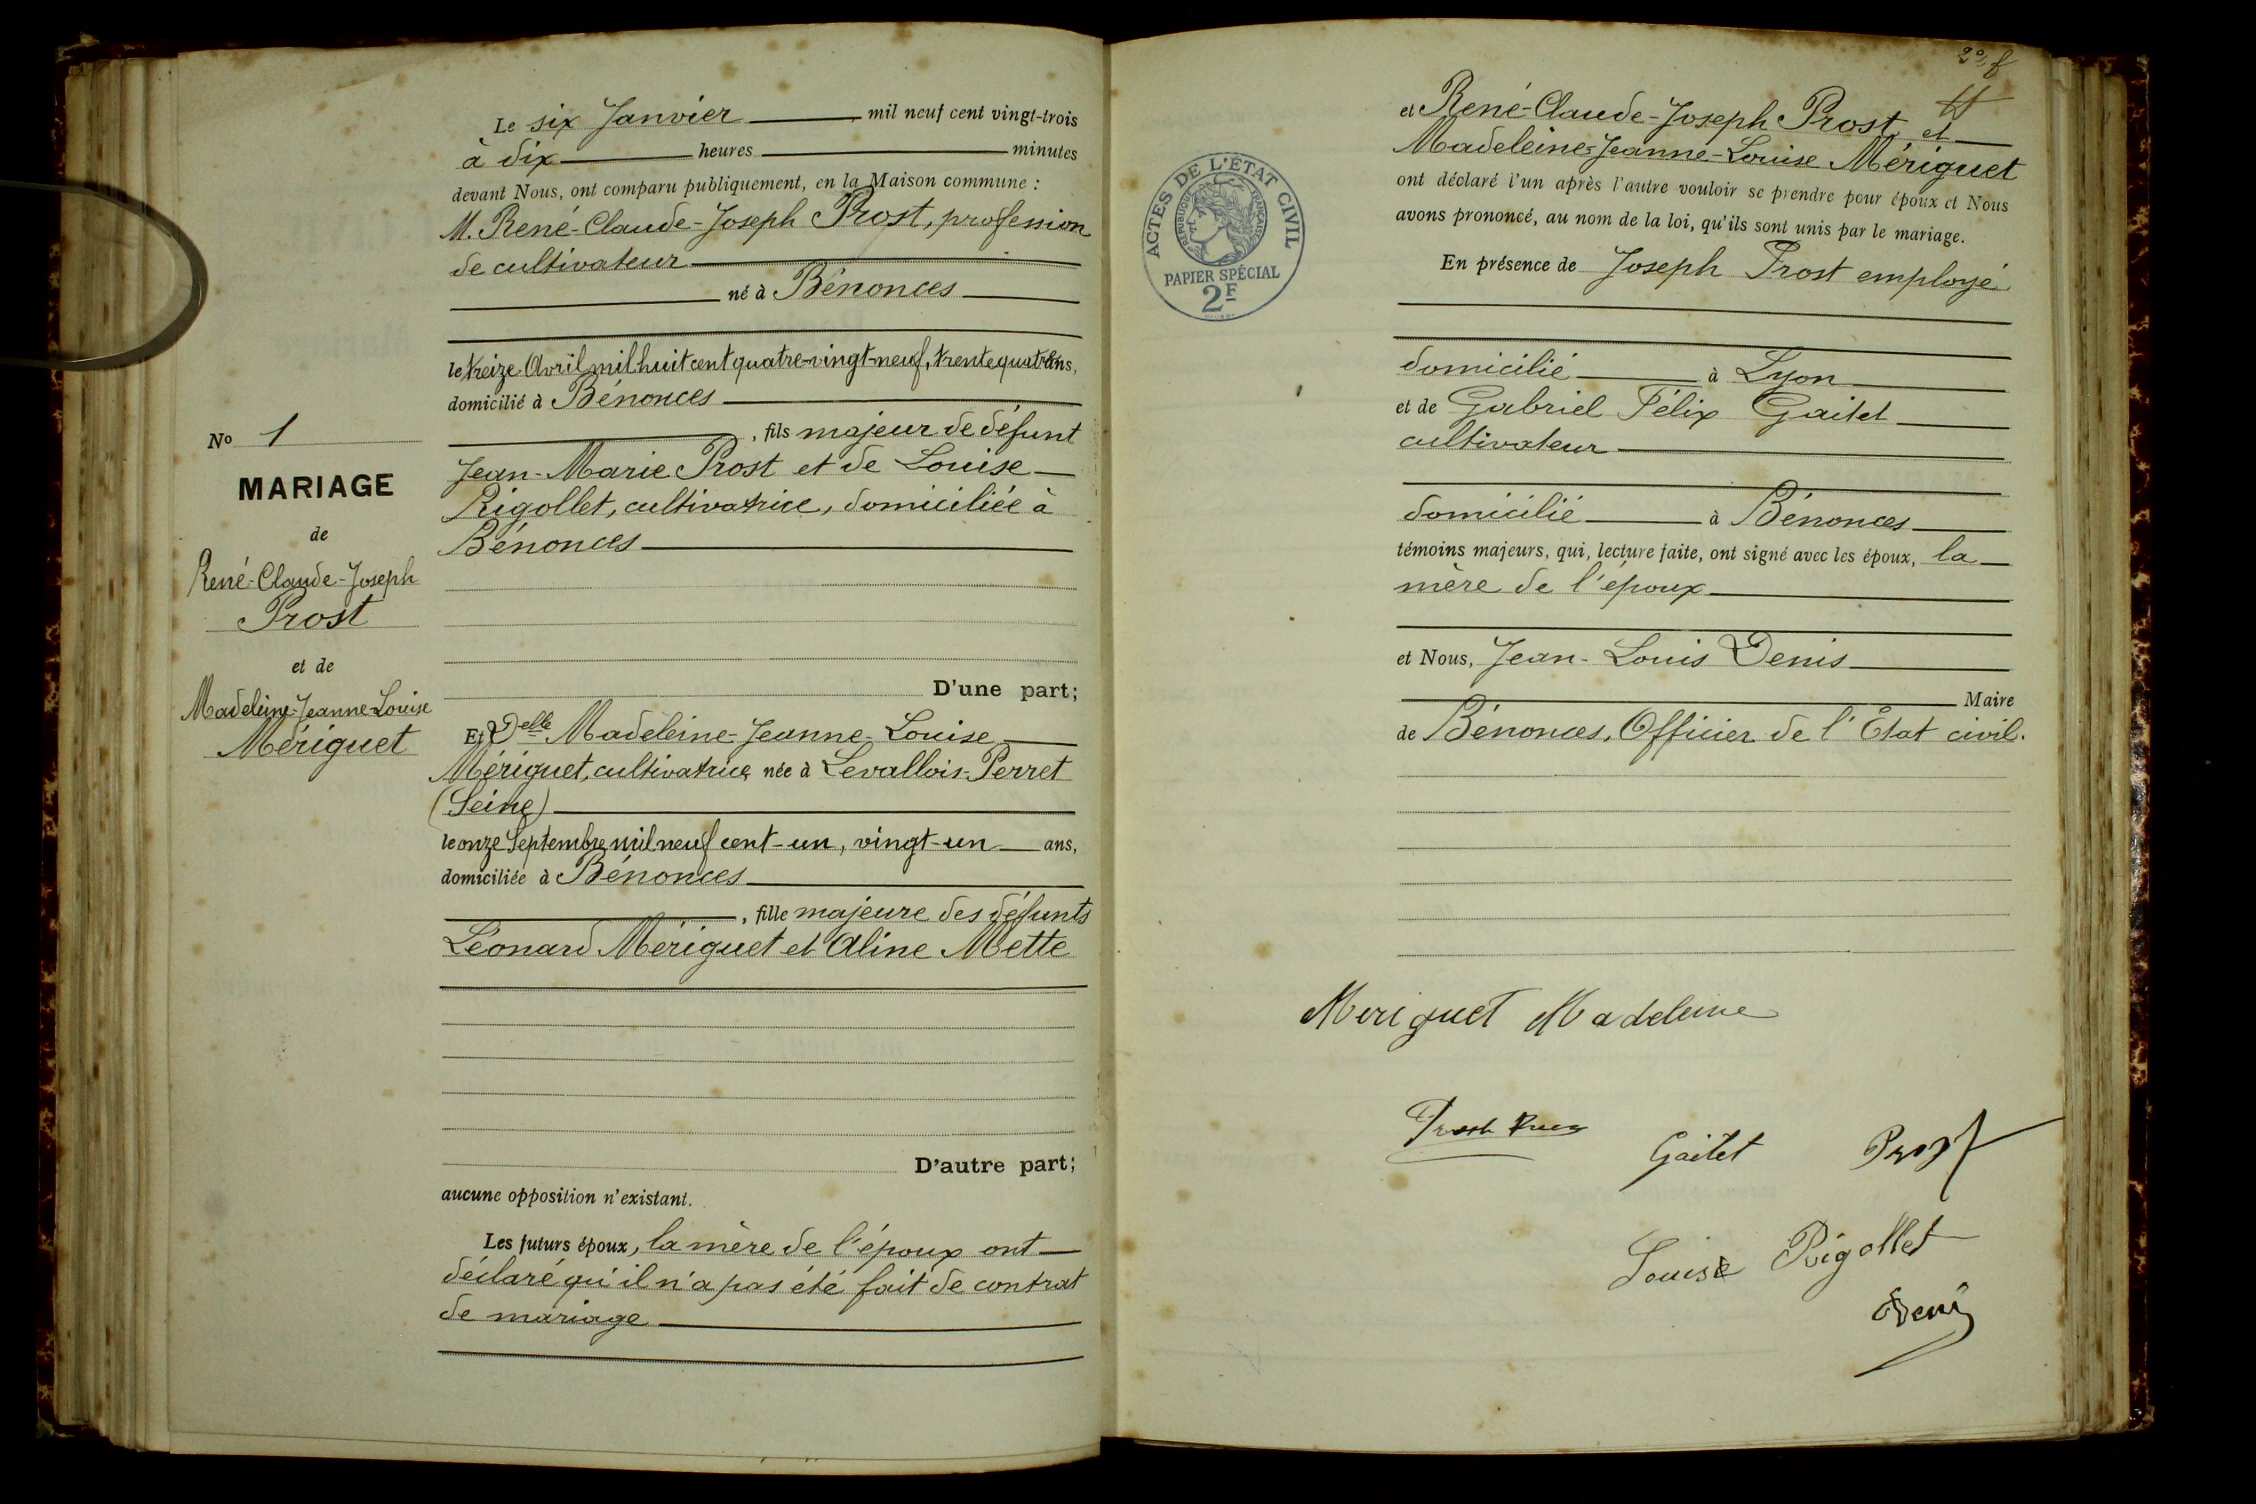 Le six Janvier mil neuf cent vingt-trois
à dix heures minutes
devant Nous, ont comparu publiquement, en la Maison commune :
M. René-Claude-Joseph Prost, profession
de cultivateur
né à Bénonces
le treize Avril mil huit cent quatre-vingt-neuf, trente quatre ans,
domicilié à Bénonces
, fils majeur de défunt
Jean-Marie Prost et de Louise
Rigollet, cultivatrice, domiciliée à
Bénonces
D'une part;
Et Delle Madeleine-Jeanne-Louise
Mériguet, cultivatrice, née à Levallois-Perret
(Seine)
le onze Septembre mil neuf cent-un, vingt-un ans,
domiciliée à Bénonces
, fille majeure des défunts
Léonard Mériguet et Aline Mette
D'autre part;
aucune opposition n'existant.
Les futurs époux, la mère de l'époux ont
déclaré qu'il n'a pas été fait de contrat
de mariage
No 1
MARIAGE
de
René-Claude-Joseph
Prost
et de
Madeleine-Jeanne-Louise
Mériguet
ACTES DE L'ETAT CIVIL
RÉPUBLIQUE FRANÇAISE
PAPIER SPÉCIAL
2F
et René-Claude-Joseph Prost, et
Madeleine-Jeanne-Louise Mériguet
ont déclaré l'un après l'autre vouloir se prendre pour époux et Nous
avons prononcé, au nom de la loi, qu'ils sont unis par le mariage.
En présence de Joseph Prost employé
domicilié à Lyon
et de Gabriel Félix Gaitet
cultivateur
domicilié à Bénonces
témoins majeurs, qui, lecture faite, ont signé avec les époux, la
mère de l'époux
et Nous, Jean-Louis Denis
Maire
de Bénonces, Officier de l'État civil.
Meriguet Madeleine
Prost René
Gaitet
Prost
Louise Rigollet
Denis